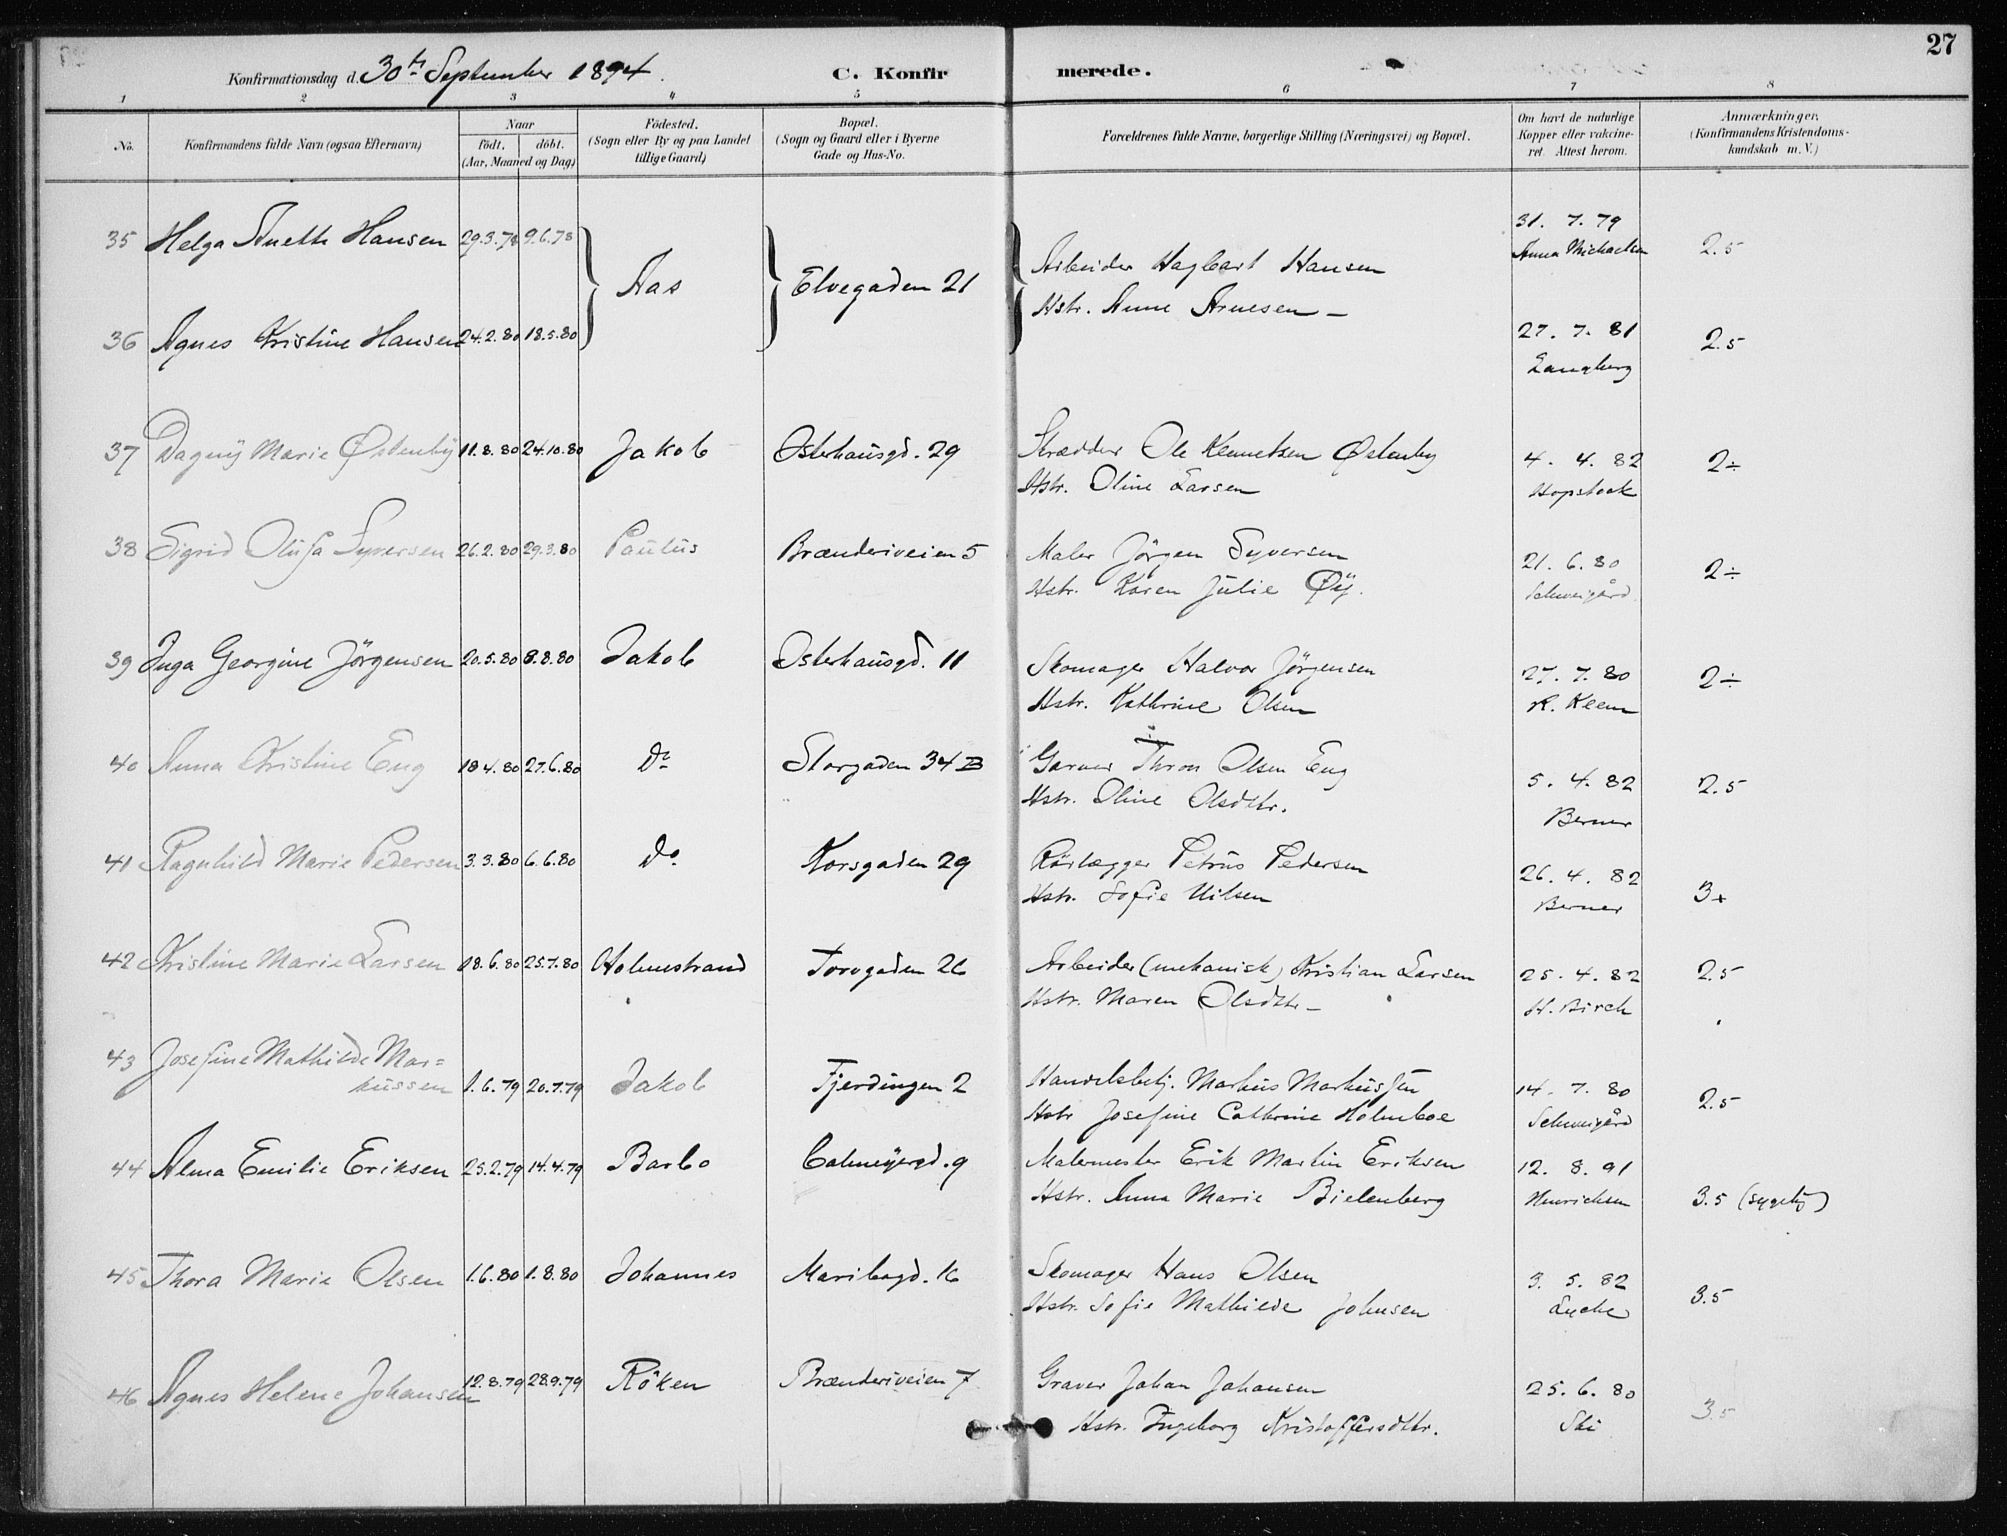 27
Konfirmationsdag d. 30te September 1894. C. Konfirmerede.
1 2 3 4 5 6 7 8
No. Konfirmandens fulde Navn (ogsaa Efternavn) Naar födt. döbt. (Aar, Maaned og Dag) Födested. (Sogn eller By og paa Landet tillige Gaard) Bopæl. (Sogn og Gaard eller i Byerne Gade og Hus-No. Forældrenes fulde Navne, borgerlige Stilling (Næringsvei) og Bopæl. Om havt de naturlige Kopper eller vakcineret. Attest herom. Anmærkninger. (Konfirmandens Kristendomskundskab m. V.)
35 Helga Anette Hansen 29.3.78 9.6.78 Aas Elvegaden 21 Arbeider Hagbart Hansen 31. 7. 79 2.5
Hstr. Anne Arnesen – Anna Michaelsen
36 Agnes Kristine Hansen 24.2.80 18.5.80 27. 7. 81 2.5
Langberg
37 Dagny Marie Østenby 11.8.80 24.10.80 Jakob Osterhausgd. 29 Skrædder Ole Kennetsen Østenby 4. 4. 82 2÷
Hstr. Oline Larsen Hopstock
38 Sigrid Olufa Syversen 26.2.80 29.3.80 Paulus Brænderiveien 5 Maler Jörgen Syversen 21. 6. 80 2÷
Hstr. Karen Julie Øy. Schweigård
39 Inga Georgine Jörgensen 20.5.80 8.8.80 Jakob Osterhausgd. 11 Skomager Halvor Jörgensen 27. 7. 80 2÷
Hstr. Kathrine Olsen R. Keem
40 Anna Kristine Eng 18 4.80 27.6.80 Do Storgaden 34 B Garver Thron Olsen Eng 5. 4. 82 2.5
Hstr. Oline Olsdtr. Berner
41 Ragnhild Marie Pedersen 3.3.80 6.6.80 Do Korsgaden 29 Rörlægger Petrus Pedersen 26. 4. 82 3+
Hstr. Sofie Nilsen Berner
42 Kristine Marie Larsen 18.6.80 25.7.80 Holmestrand Torvgaden 26 Arbeider (mekanisk) Kristian Larsen 25. 4. 82 2.5
Hstr. Maren Olsdtr – H. Birch
43 Josefine Mathilde Markussen 1.6.79 20.7.79 Jakob Fjerdingen 2 Handelsbetj. Markus Markussen 14. 7. 80 2.5
Hstr Josefine Cathrine Holmboe Schweigård
44 Alma Emilie Eriksen 25.2.79 14.4.79 Barbo Calmeyergd. 9 Malermester Erik Martin Eriksen 12. 8. 91
Hstr. Anna Marie Bielenberg Henrichsen 3.5 (sygelig)
45 Thora Marie Olsen 1.6.80 1.8.80 Johannes Maribogd. 16 Skomager Hans Olsen 3. 5. 82 3.5
Hstr. Sofie Mathilde Johnsen Lyche
46 Agnes Helene Johansen 12.8.79 28.9.79 Röken Brænderiveien 7 Graver Johan Johansen 25. 6. 80 3.5
Hstr. Ingeborg Kristoffersdttr. Ski